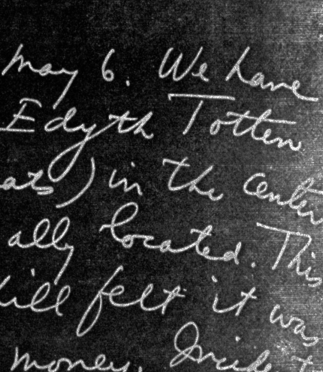 May 6. We have
Edyth Totten
ats) in the center
ally located. This
ill felt it was
money. Incid t